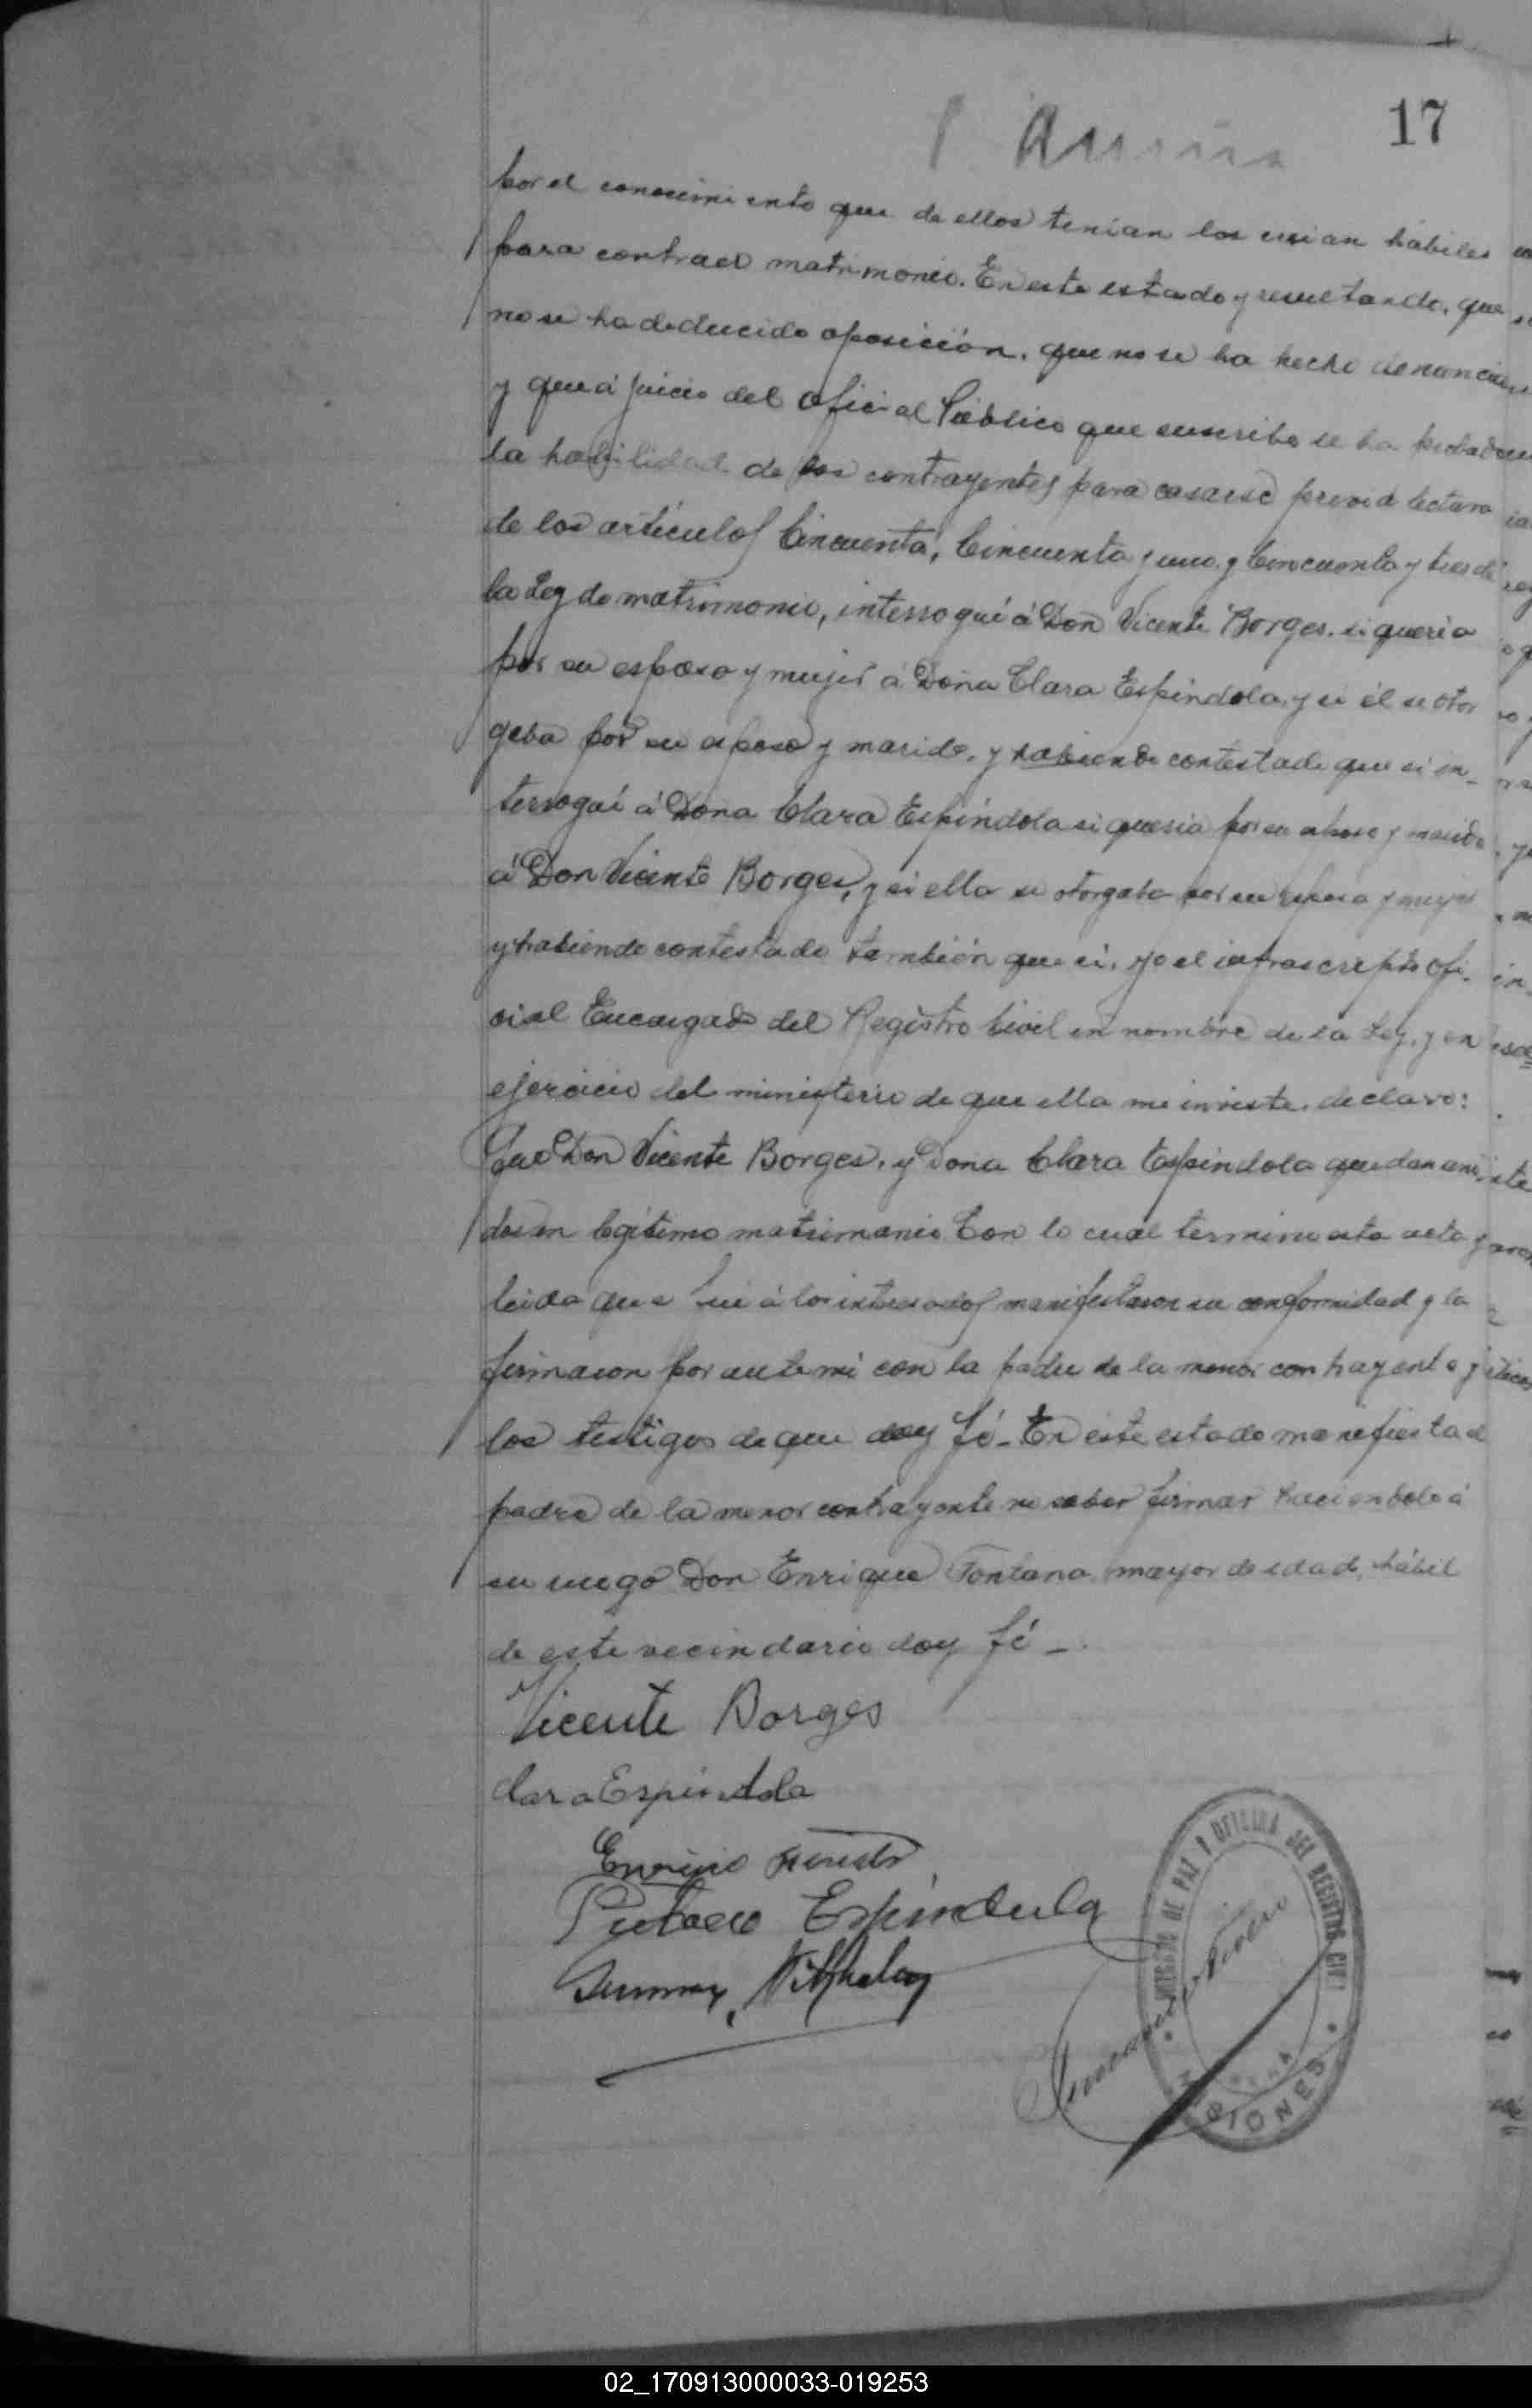 17
por el conocimiento que de ellos tenian los creian hábiles
para contraer matrimonio. En este estado y resultando, que
no se ha deducido oposición, que no se ha hecho denuncia
y que á juicio del Oficial Público que suscribe se ha probado
la habilidad de los contrayentes para casarse previa lectura
de los artículos Cincuenta, Cincuenta y uno y Cincuenta y tres de
la Ley de matrimonio, interrogué á Don Vicente Borges, si queria
por su esposa y mujer á Doña Clara Espíndola, y si él se otor
gaba por su esposo y marido, y habiendo contestado que si in-
terrogué á Doña Clara Espíndola si queria por su esposo y marido
á Don Vicente Borges, y si ella se otorgaba por su esposa y mujer
y habiendo contestado también que si, yo el infrascripto Ofi-
cial Encargado del Registro Civil en nombre de la Ley, y en
ejercicio del ministerio de que ella me inviste, declaro:
Que Don Vicente Borges, y Doña Clara Espíndola quedan uni-
dos en legítimo matrimonio Con lo cual termino esta acta y
leida que fué á los interesados manifestaron su conformidad y la
firmaron por ante mi con la padre de la menor contrayente y
los testigos de que doy fé - En este estado manifiesta el
padre de la menor contrayente no saber firmar haciendolo á
su ruego Don Enrique Fontana mayor de edad, hábil
de este vecindario doy fé -.
Vicente Borges
Clara Espindola
Espíndula
JUZGADO DE PAZ Y OFICINA DEL REGISTRO CIVIL
MISIONES
02_170913000033-019253